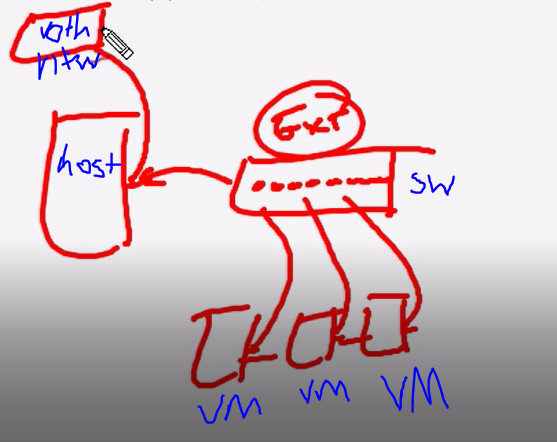 ntw
host
Ext
SW
VM
VM
VM